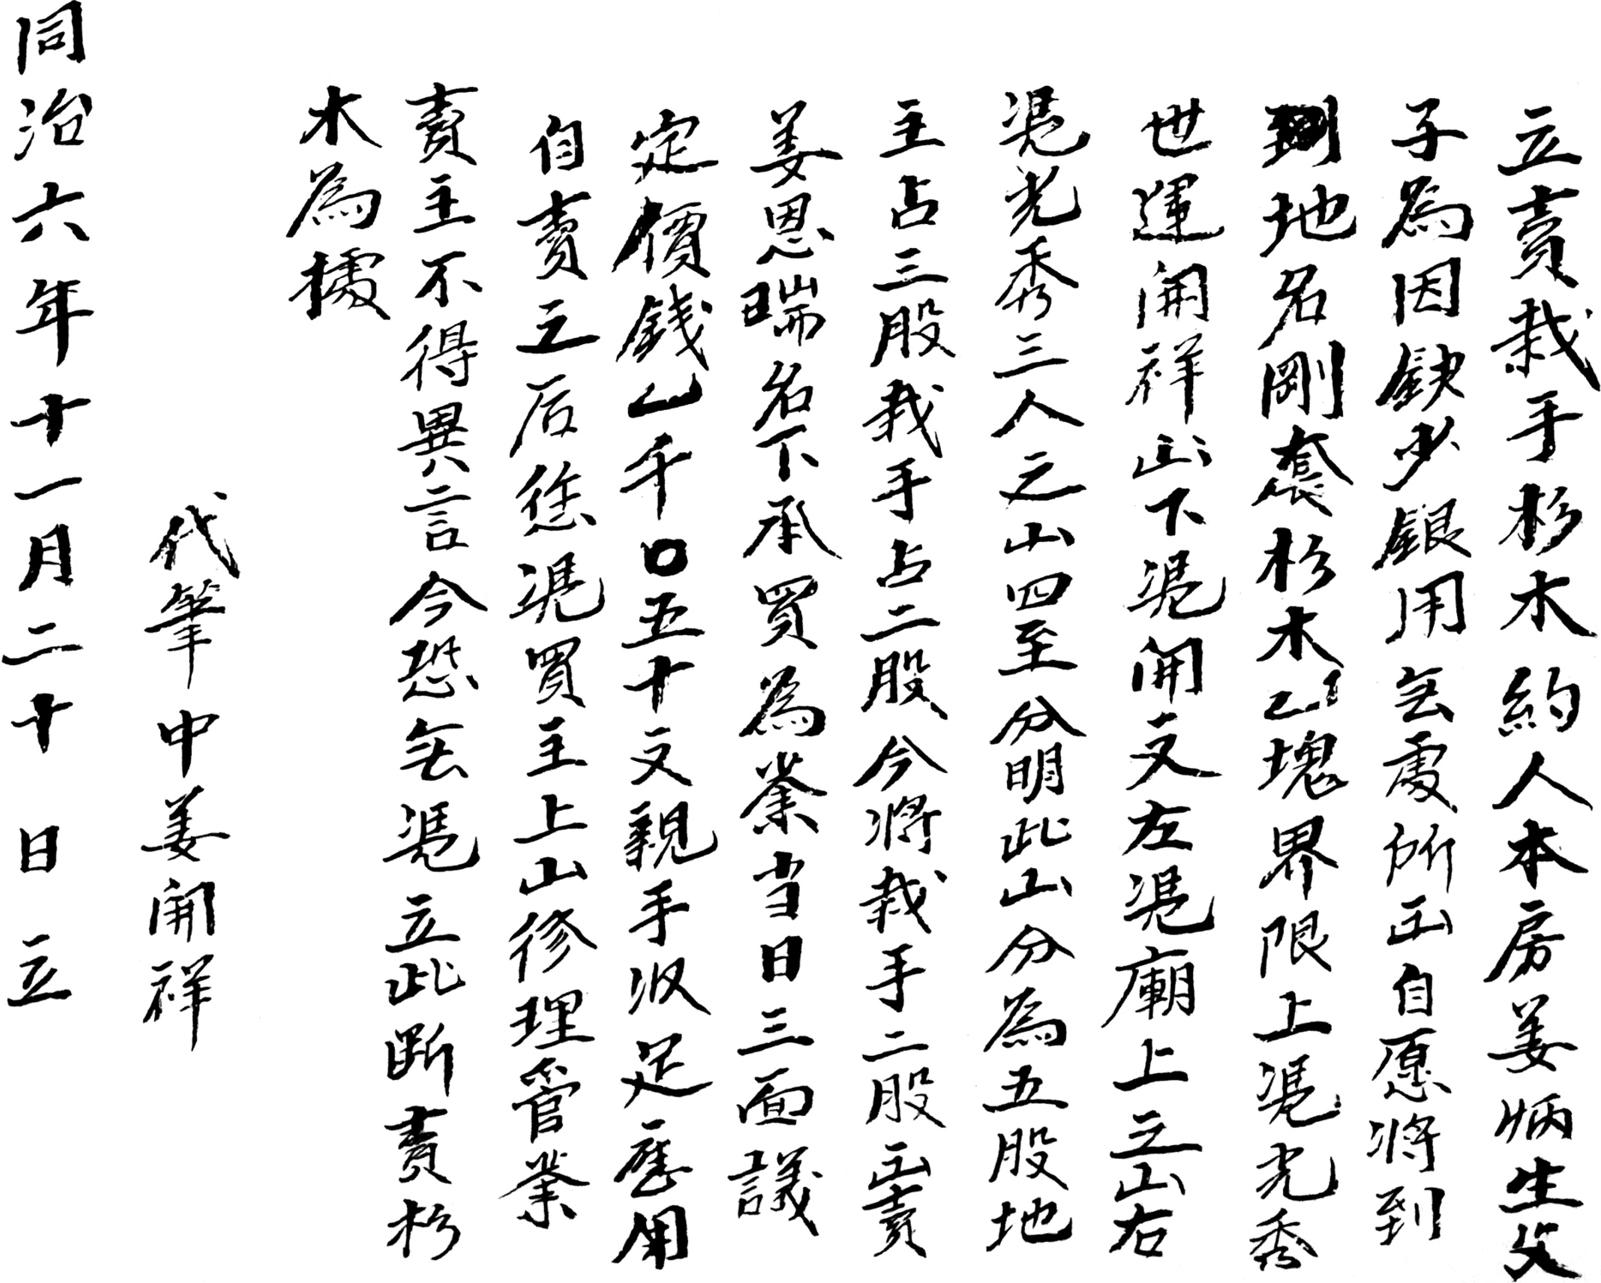 立賣栽手杉木約人本房姜炳生父
子為因缺少銀用無處所出自愿將到
地名剛套杉木乙塊界限上凭光秀
世運開祥山下凭開文左凭廟上之山右
凭光秀三人之山四至分明此山分為五股地
主占三股栽手占二股今將栽手二股出賣
姜恩瑞名下承買為業当日三面議
定價錢乙千〇五十文親手收足應用
自賣之后恁凭買主上山修理管業
賣主不得異言今恐無凭立此断賣杉
木為據
代筆中姜開祥
同治六年十一月二十日立